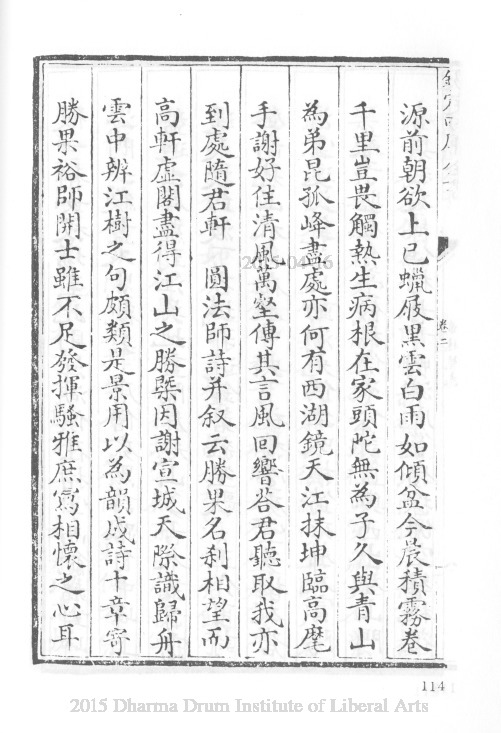 卷二
源前朝欲上已蠟屐黒雲白雨如傾盆今晨積霧卷
千里豈畏觸熱生病根在家頭陀無為子久與青山
為弟昆孤峰盡處亦何有西湖鏡天江抹坤臨高麾
手謝好住清風萬壑傳其言風回響荅君聽取我亦
到處隨君軒　圓法師詩并叙云勝果名刹相望而
高軒虚閣盡得江山之勝槩因謝宣城天際識歸舟
雲中辨江樹之句頗類是景用以為韻成詩十章寄
勝果裕師開士雖不足發揮騷雅庶寫相懷之心耳
114
2015 Dharma Drum Institute of Liberal Arts